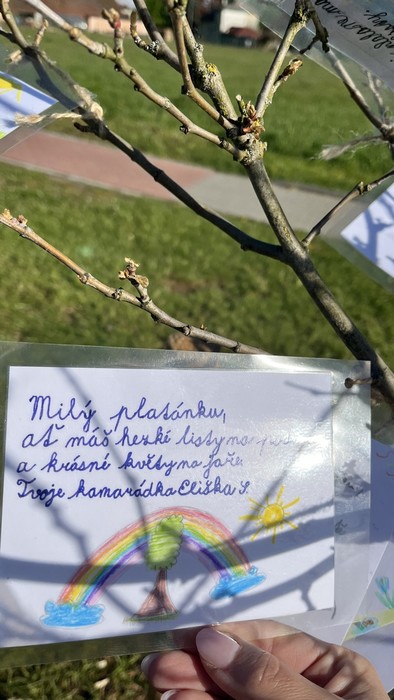 Milý platánku,
ať máš hezké listy na
a krásné květy na jaře.
Tvoje kamarádka Eliška S.